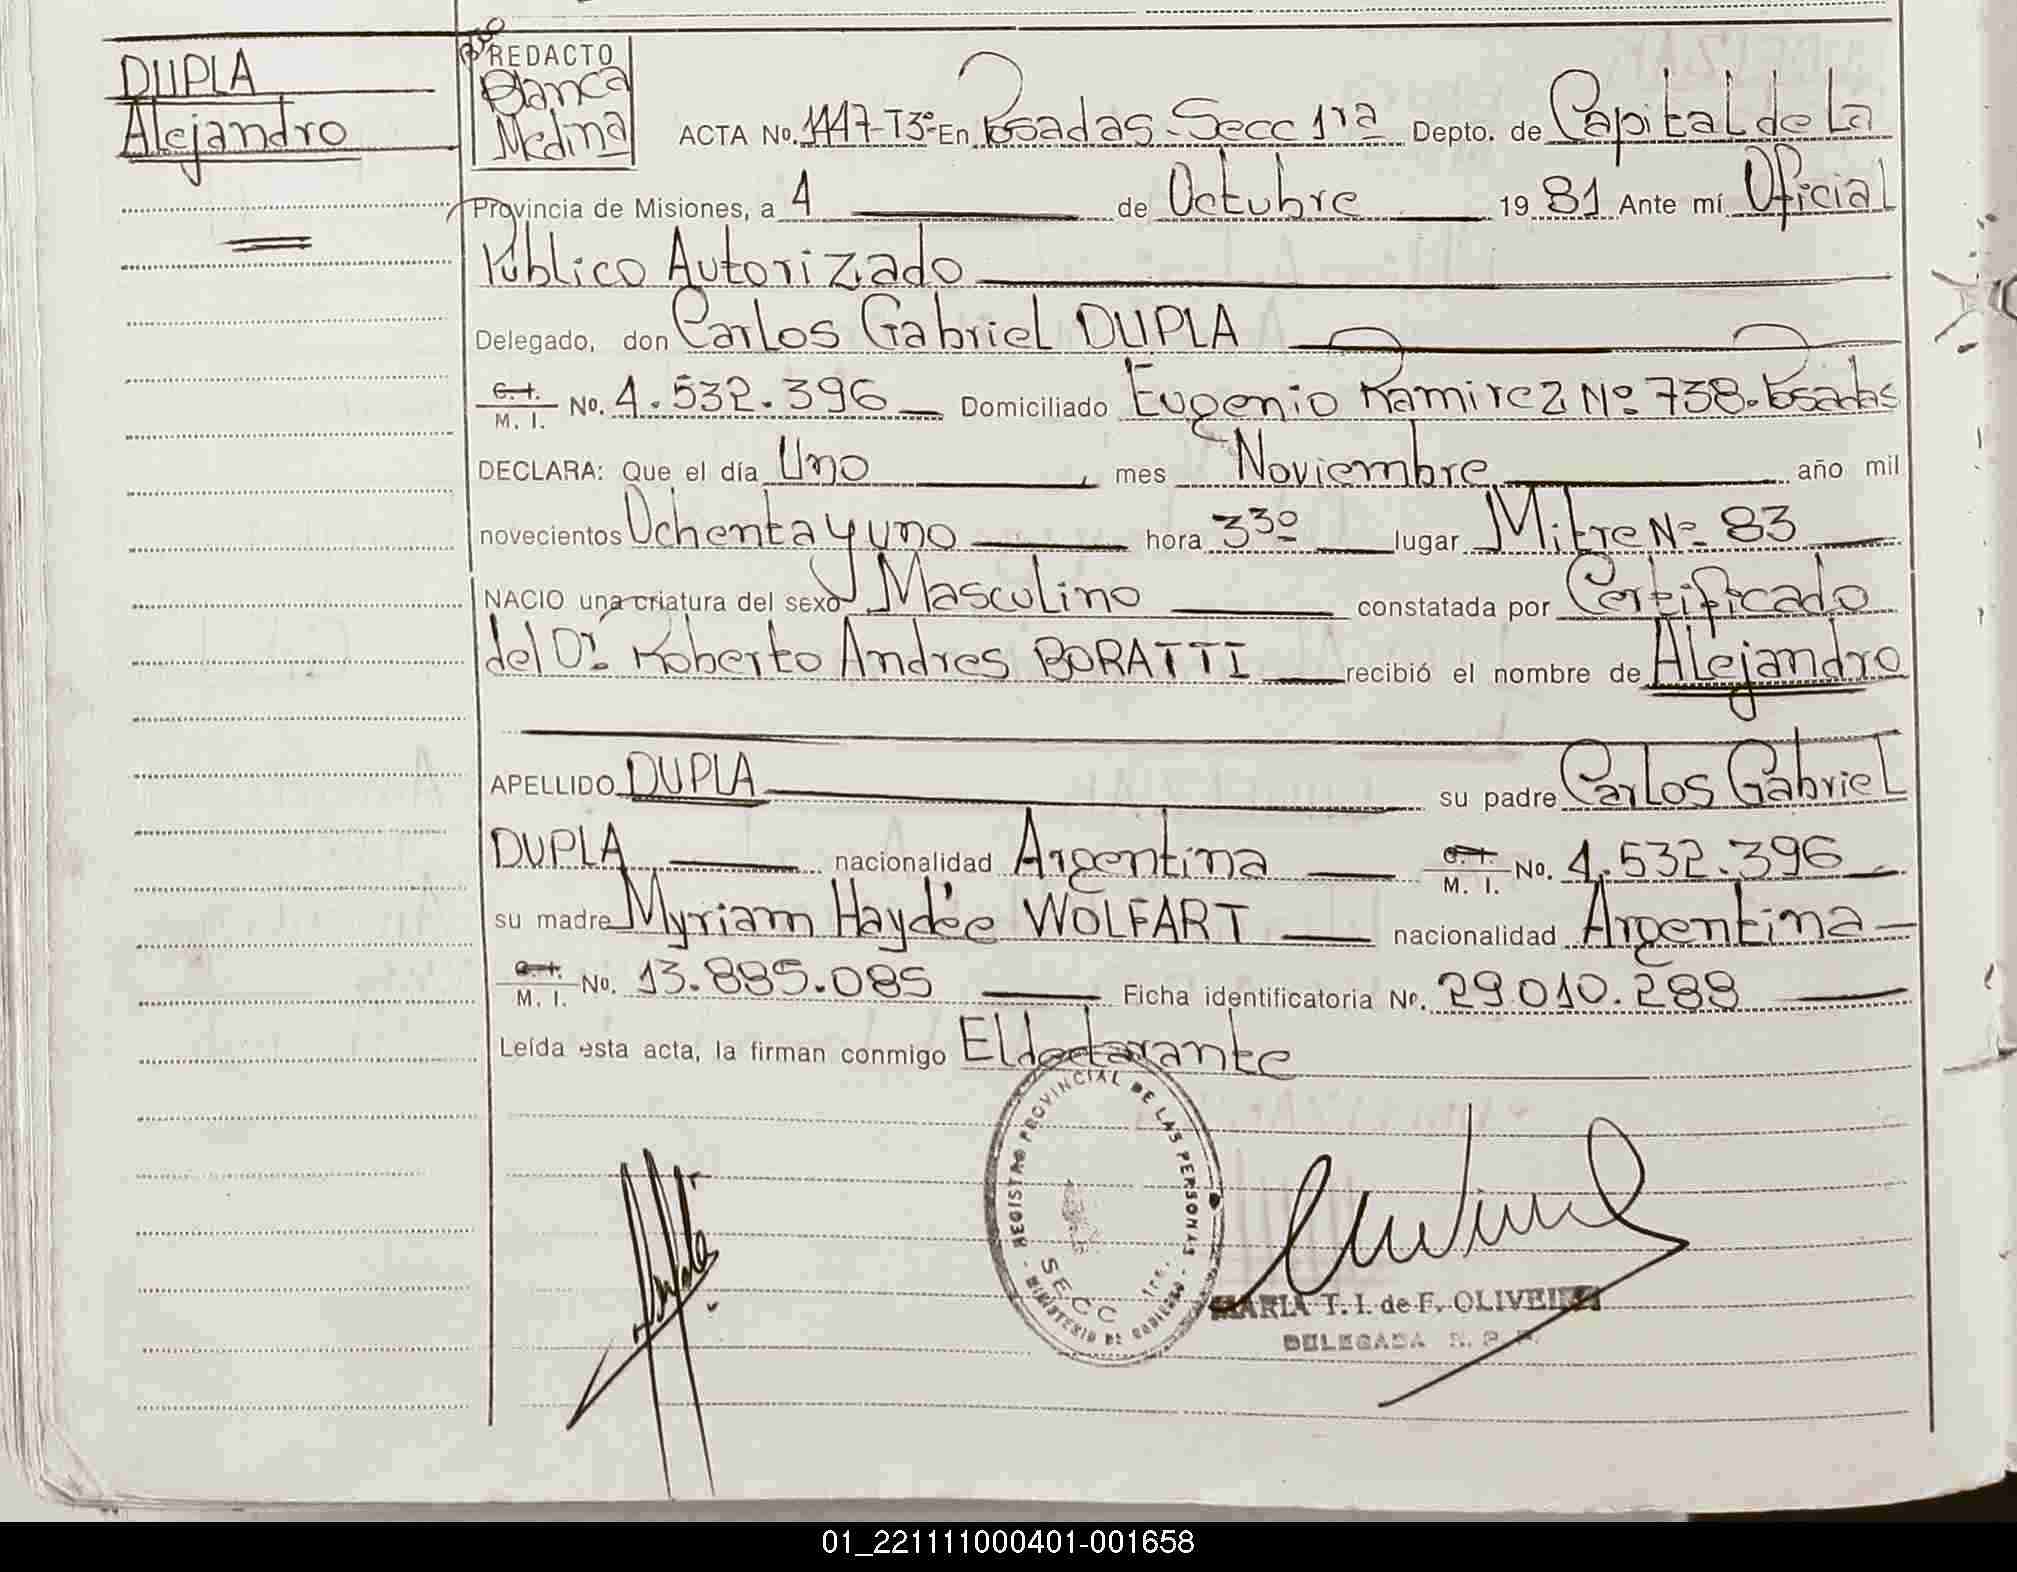 DUPLA
Alejandro
REDACTO
Blanca
Medina
ACTA No. 1447-T3º- En Posadas-Secc 1ra Depto. de Capital de La
Provincia de Misiones, a 4 de Octubre 1981 Ante mí Oficial
Público Autorizado
Delegado, don Carlos Gabriel DUPLA
C.I. M. I. No. 4.532.396 Domiciliado Eugenio Ramirez Nº 738-Posadas
DECLARA: Que el día Uno, mes Noviembre año mil
novecientos Ochenta y uno hora 3 30 lugar Mitre Nº 83
NACIO una criatura del sexo Masculino constatada por Certificado
del Dr. Roberto Andres BORATTI recibió el nombre de Alejandro
APELLIDO DUPLA su padre Carlos Gabriel
DUPLA nacionalidad Argentina C.I. M. I. No. 4.532.396
su madre Myriam Haydée WOLFART nacionalidad Argentina
C.I. M. I. No. 13.885.085 Ficha identificatoria No. 29.010.289
Leída esta acta, la firman conmigo El declarante
REGISTRO PROVINCIAL DE LAS PERSONAS
SECC 1ra.
MINISTERIO DE GOBIERNO
MARIA T. I. de F. OLIVEIRA
DELEGADA R. P. P.
01_221111000401-001658